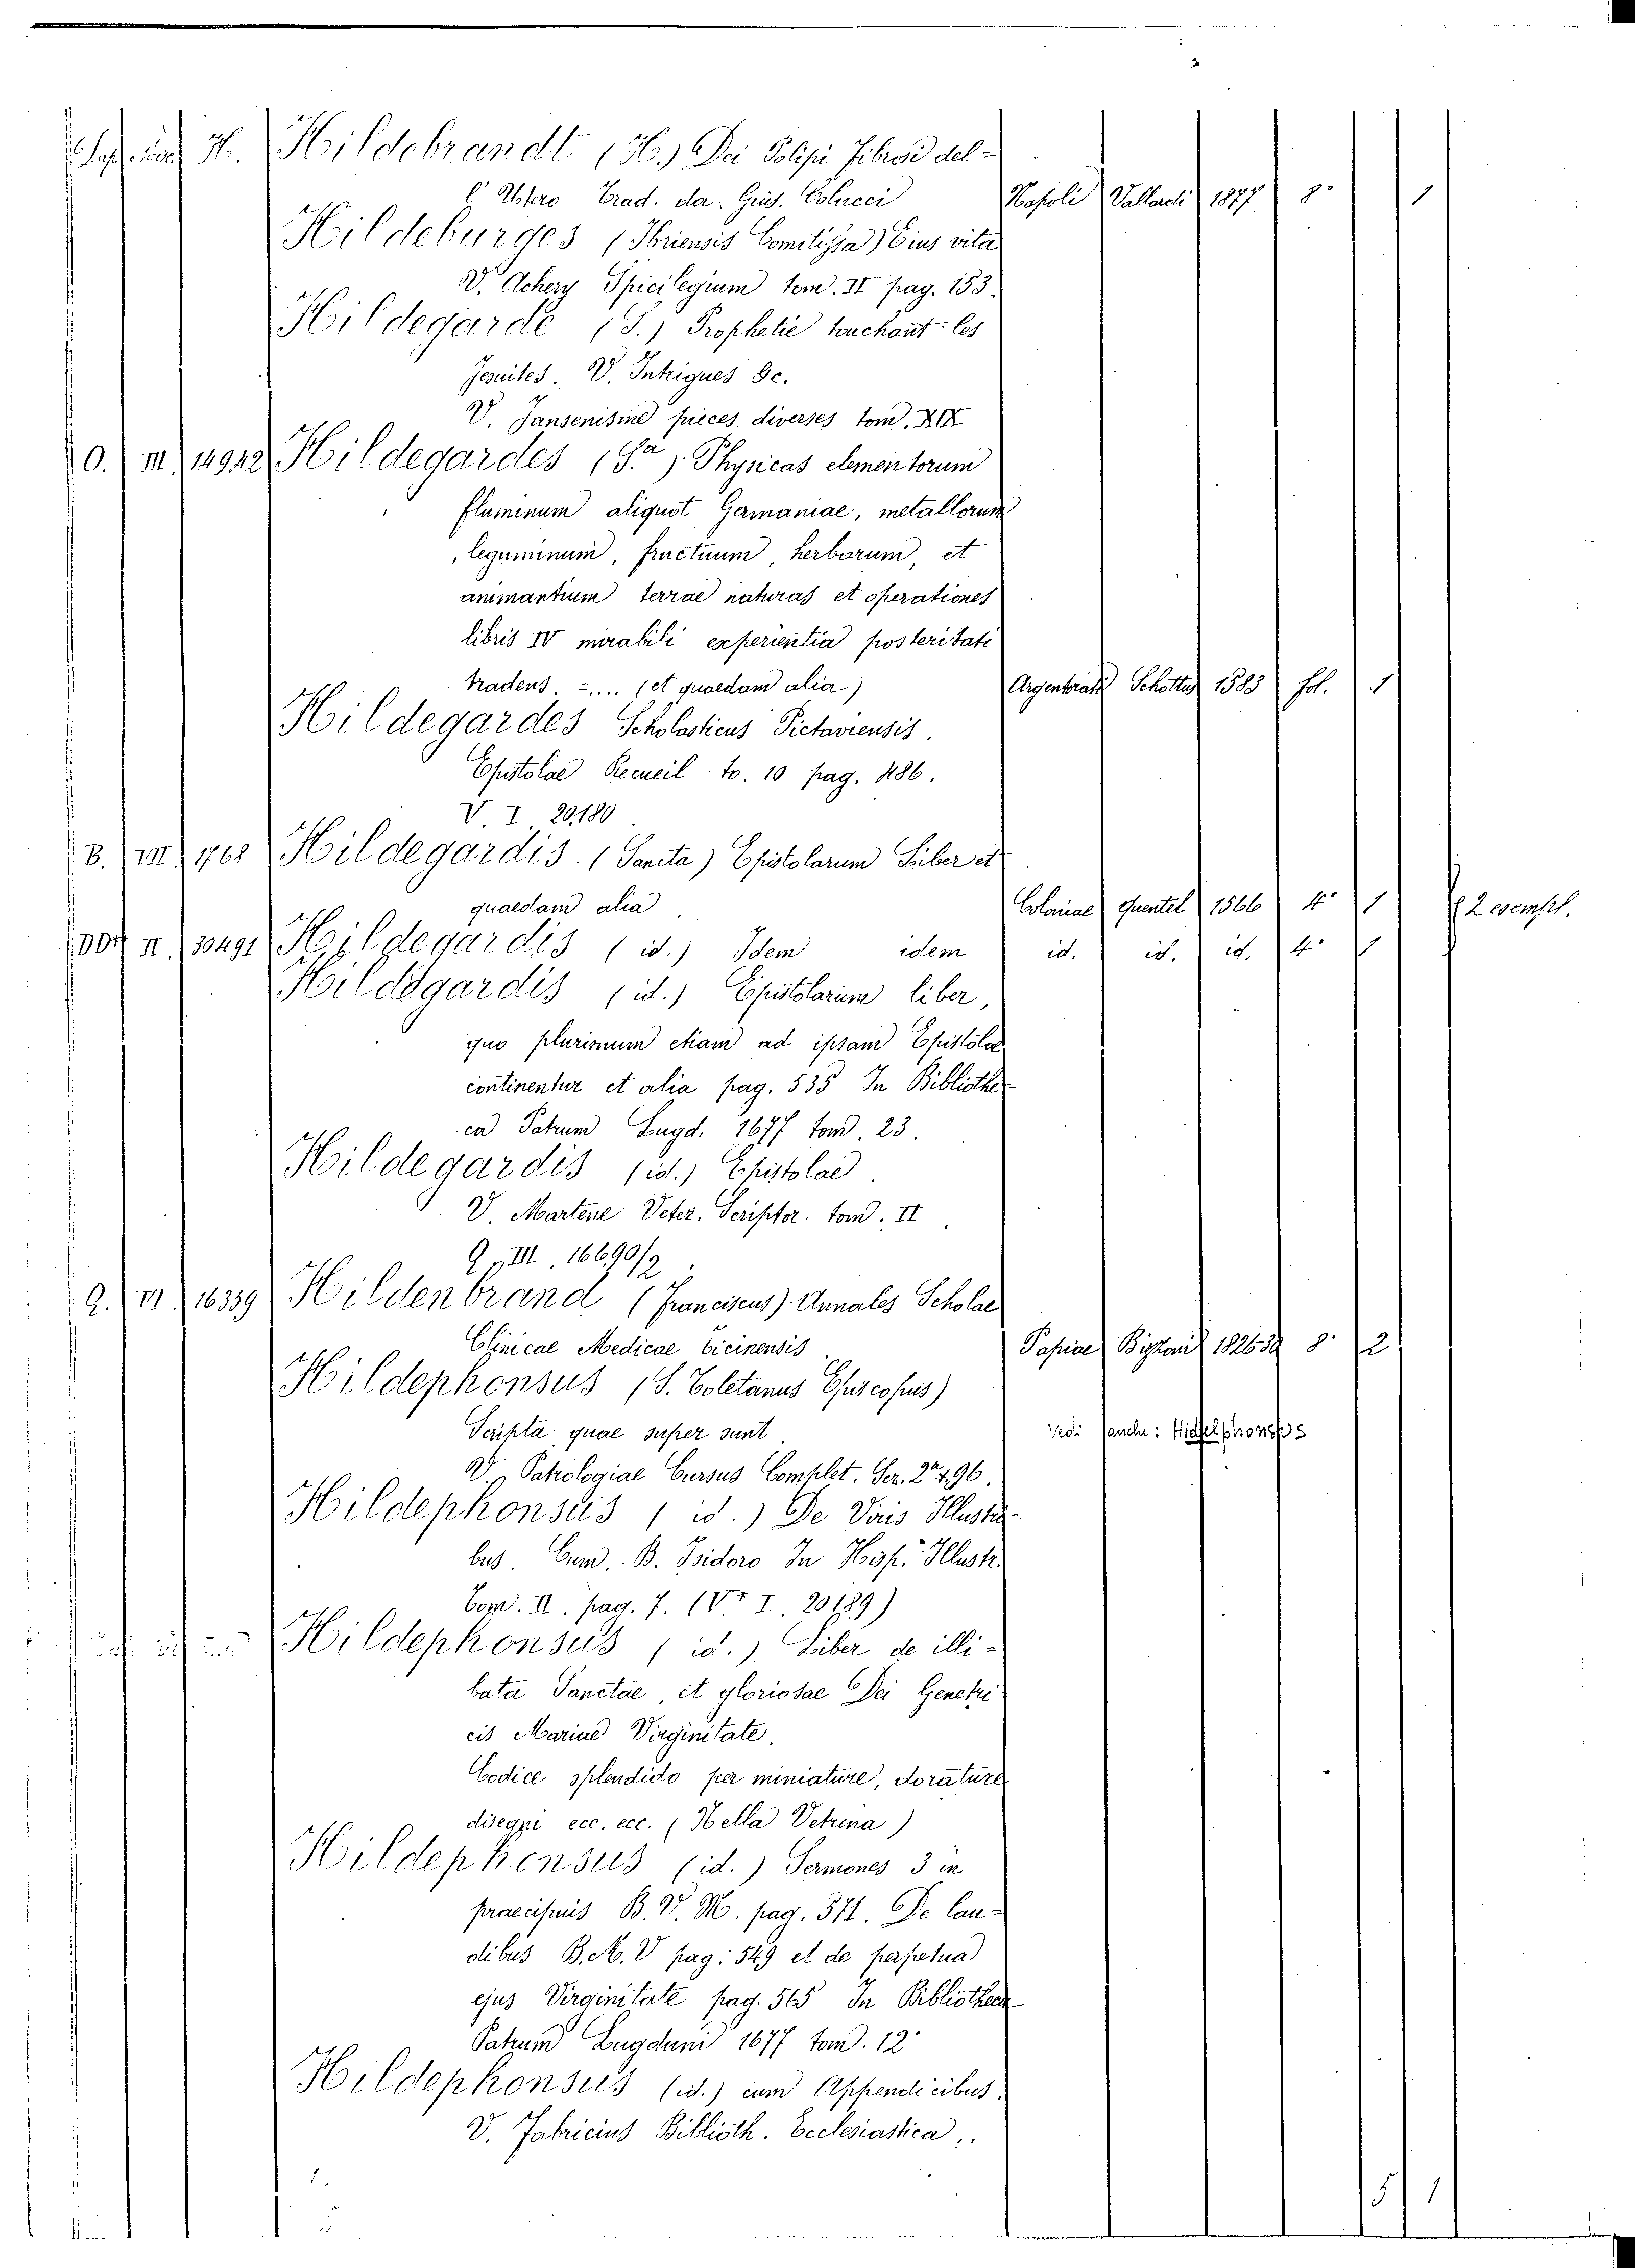 H. Hildebrandt (H.) Dei Polipi fibrosi del-
l'Utero Trad. da Gius. Colucci Napoli Vallardi 1877 8º 1
Hildeburges (Ibriensis Comitissa) Eius vita
V. Achery Spicilegium tom. II pag. 153.
Hildegarde (S.) Prophetie touchant les
Jesuites. V. Intrigues &c.
V. Jansenisme pieces diverses tom. XIX
O. III 14942 Hildegardes (S.a) Physicas elementorum
fluminum aliquot Germaniae, metallorum
leguminum, fructuum, herbarum, et
animantium terrae naturas et operationes
libris IV mirabili experientia posteritati
tradens. =.... (et quaedam alia) Argentorati Schottus 1583 fol. 1
Hildegardes Scholasticus Pictaviensis.
Epistolae Recueil to. 10 pag. 486.
V. I 20,180
B. VII 1768 Hildegardis (Sancta) Epistolarum Liber et
quaedam alia Coloniae Quentel 1566 4º 1 2 esempl.
II. 30491 Hildegardis (id.) Idem idem id. id. id. 4º 1
Hildegardis (id.) Epistolarum liber,
quo plurimum etiam ad ipsam Epistolae
continentur et alia pag. 535 In Bibliothe
ca Patrum Lugd. 1677 tom. 23.
Hildegardis (id.) Epistolae.
V. Martene Veter. Scriptor. tom. II.
Q. III. 16690/2
Q. VI 16339 Hildenbrand (Franciscus) Annales Scholae
Clinicae Medicae Ticinensis Papiae Bizzoni 1826-30 8º 2
Hildephonsus (S. Toletanus Episcopus)
Scripta quae super sunt. Vedi anche: Hidelphonsus
V. Patrologiae Cursus Complet. Ser. 2a t. 96.
Hildephonsus (id.) De Viris Illustri-
bus. Cum. B. Isidoro In Hisp. Illustr.
Tom. II. pag. 7. (V+ I. 20189)
Hildephonsus (id.) Liber de illi-
bata Sanctae, et gloriosae Dei Genetri
cis Marine Virginitate.
Codice splendido per miniature, dorature
disegni ecc. ecc. (Nella Vetrina)
Hildephonsus (id.) Sermones 3 in
praecipuis B. V. M. pag. 571. De lau-
dibus B. M. V pag. 549 et de perpetua
ejus Virginitate pag. 565 In Bibliotheca
Patrum Lugduni 1677 tom. 12º
Hildephonsus (id.) cum Appendicibus.
V. Fabricius Biblioth. Ecclesiastica.
5 1